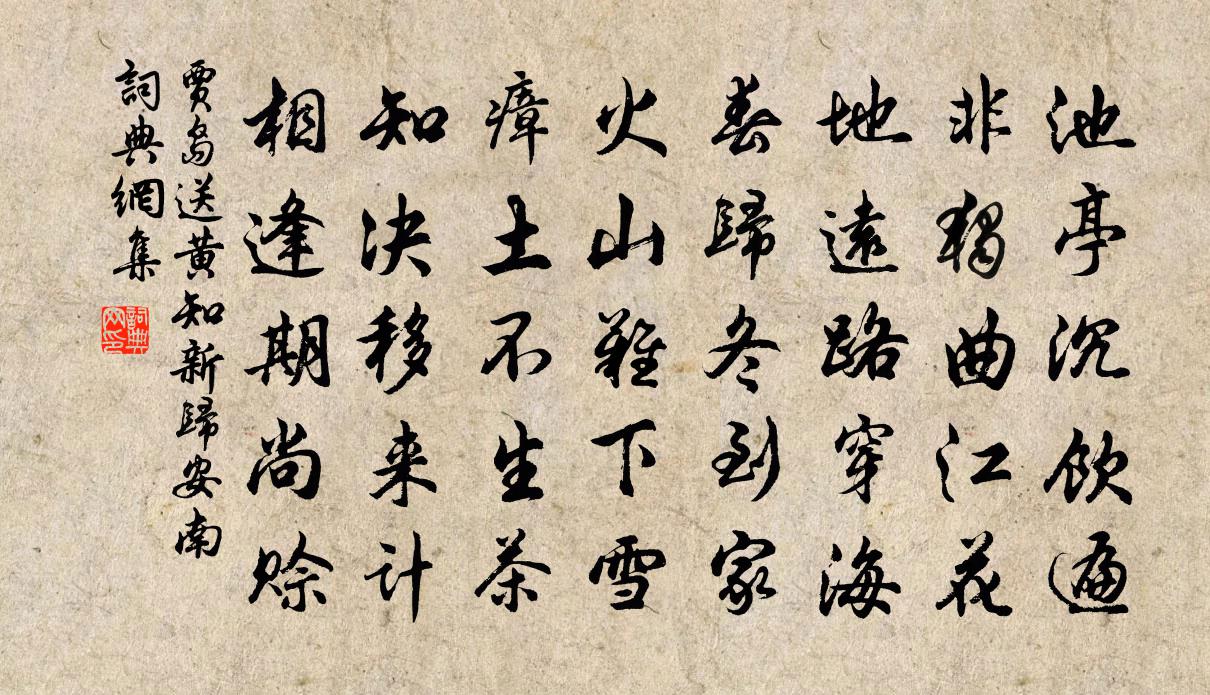 池亭沉饮遍
非獨曲江花
地遠路穿海
春歸冬到家
火山難下雪
瘴土不生茶
知决移来计
相逢期尚赊
賈島送黄知新歸安南
詞典網集
詞典网印